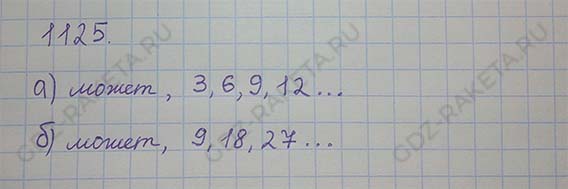 1125.
а) может, 3, 6, 9, 12...
б) может, 9, 18, 27...
GDZ-RAKETA.RU
GDZ-RAKETA.RU
GDZ-RAKETA.RU
GDZ-RAKETA.RU